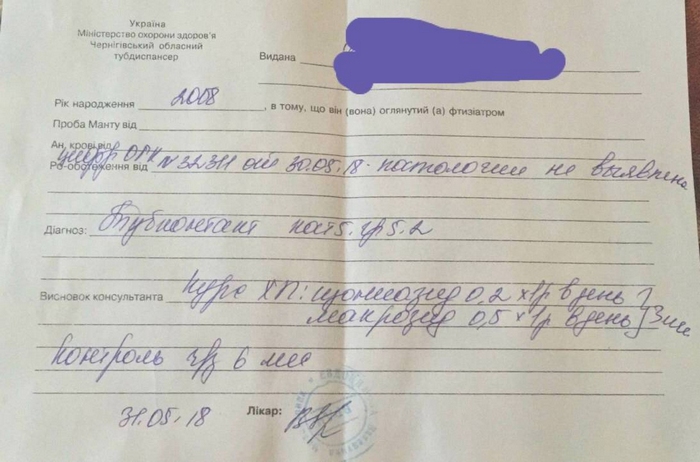 Україна
Міністерство охорони здоров'я
Чернігівський обласний
тубдиспансер
Видана
Рік народження 2008, в тому, що він (вона) оглянутий (а) фтизіатром
Проба Манту від
Ан. крові від
цифр ОГК N 32311 от 30.05.18 - патологии не выявлено
Ро-обстеження від
Діагноз: Тубконтакт кат 5. гр 5.2
Висновок консультанта Курс ХП: изониазид 0,2 х 1р в день
макрозид 0,5 х 1р в день 3 мес
Контроль чрз 6 мес
31.05.18 Лікар: